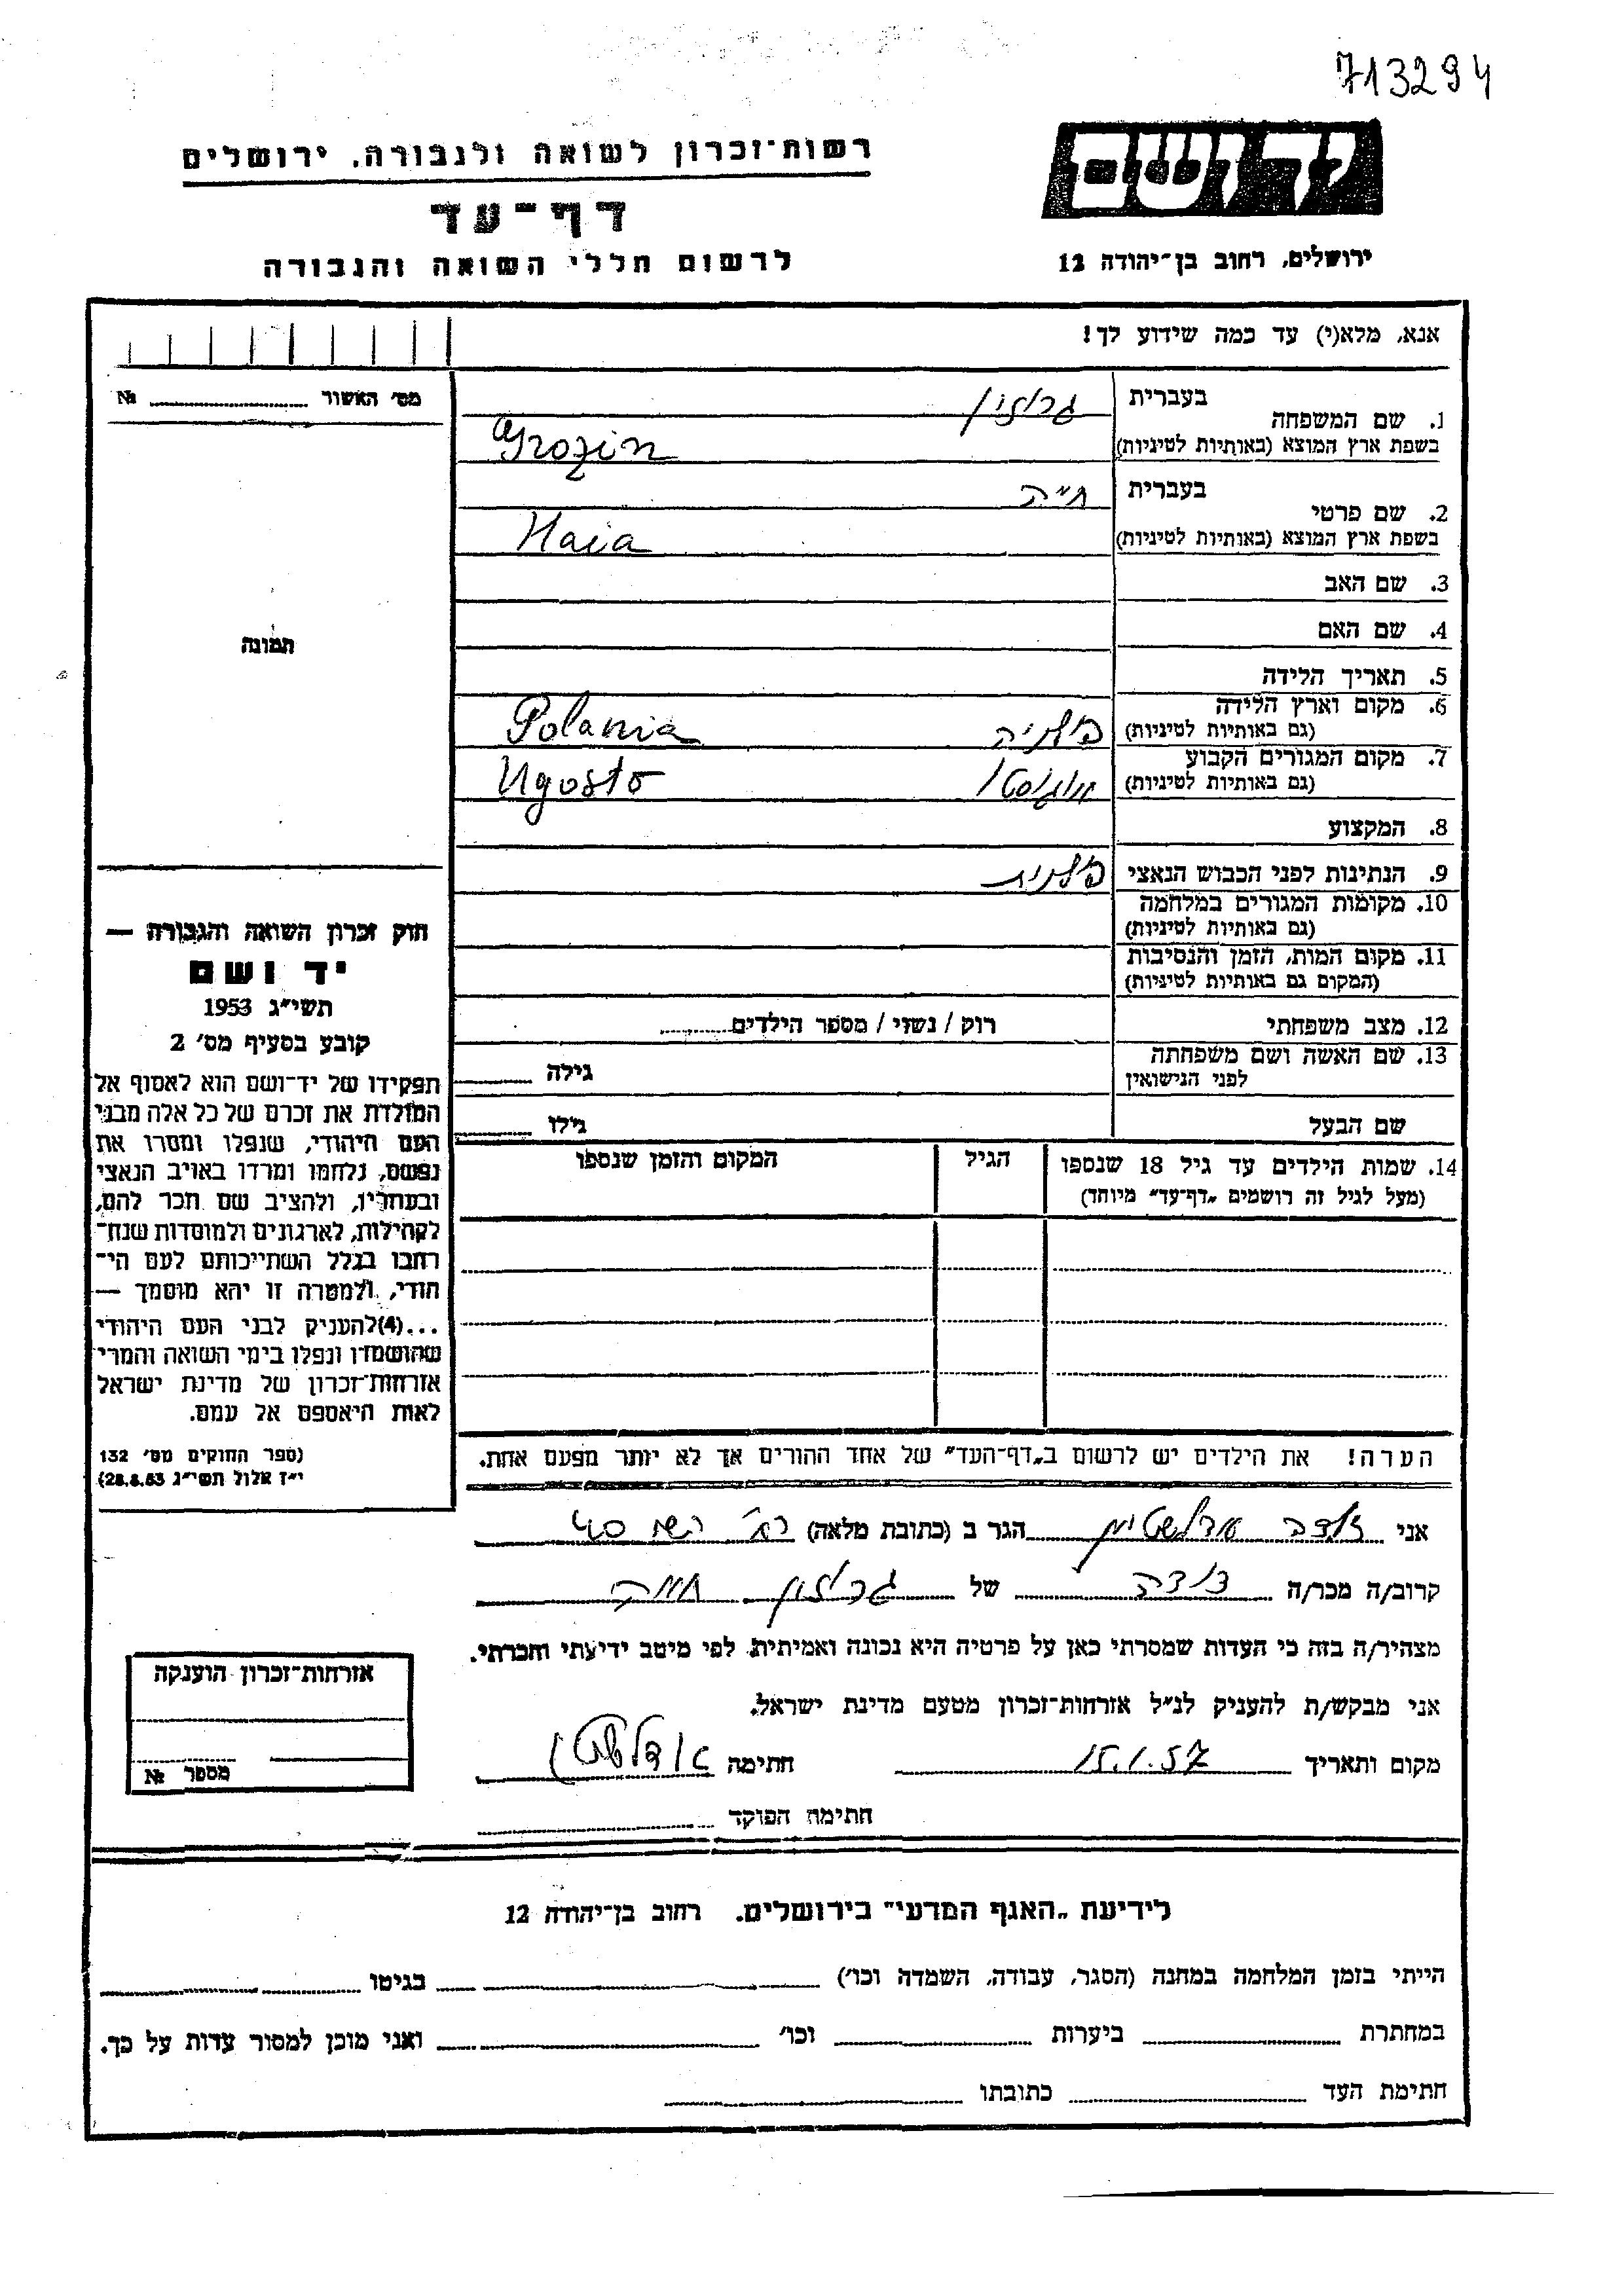 713294
יד ושם
רשות־זכרון לשואה ולגבורה, ירושלים
דף־עד
ירושלים, רחוב בן־יהודה 12
לרשום חללי השואה והגבורה
אנא, מלא(י) עד כמה שידוע לך!
מס' האשור № 
1. שם המשפחה
בעברית גרוזין
בשפת ארץ המוצא (באותיות לטיניות) Grozin
2. שם פרטי
בעברית חיה
בשפת ארץ המוצא (באותיות לטיניות) Haia
3. שם האב
4. שם האם
תמונה
5. תאריך הלידה
6. מקום וארץ הלידה
(גם באותיות לטיניות) פולניה Polania
7. מקום המגורים הקבוע
(גם באותיות לטיניות) אוגוסטו Ugosto
8. המקצוע
9. הנתינות לפני הכבוש הנאצי פולנית
10. מקומות המגורים במלחמה
(גם באותיות לטיניות)
11. מקום המות, הזמן והנסיבות
(המקום גם באותיות לטיניות)
12. מצב משפחתי רוק / נשוי / מספר הילדים
13. שם האשה ושם משפחתה
לפני הנישואין גילה
שם הבעל גילו
14. שמות הילדים עד גיל 18 שנספו
(מעל לגיל זה רושמים „דף־עד" מיוחד)
הגיל
המקום והזמן שנספו
חוק זכרון השואה והגבורה —
יד ושם
תשי"ג 1953
קובע בסעיף מס' 2
תפקידו של יד־ושם הוא לאסוף אל
המולדת את זכרם של כל אלה מבני
העם היהודי, שנפלו ומסרו את
נפשם, נלחמו ומרדו באויב הנאצי
ובעוזריו, ולהציב שם וזכר להם,
לקהילות, לארגונים ולמוסדות שנח־
רבו בגלל השתייכותם לעם הי־
הודי, ולמטרה זו יהא מוסמך —
...(4)להעניק לבני העם היהודי
שהושמדו ונפלו בימי השואה והמרי
אזרחות־זכרון של מדינת ישראל
לאות היאספם אל עמם.
(ספר החוקים מס' 132
י"ז אלול תשי"ג 28.8.53)
הערה! את הילדים יש לרשום ב„דף־העד" של אחד ההורים אך לא יותר מפעם אחת.
אני אדלשטיין הגר ב (כתובת מלאה) 40
קרוב/ה מכר/ה דודה של גרוזין חייה
מצהיר/ה בזה כי העדות שמסרתי כאן על פרטיה היא נכונה ואמיתית, לפי מיטב ידיעתי והכרתי.
אני מבקש/ת להעניק לנ"ל אזרחות־זכרון מטעם מדינת ישראל.
מקום ותאריך 15.1.57 חתימה
חתימת הפוקד
אזרחות־זכרון הוענקה
מספר №
לידיעת „האגף המדעי" בירושלים. רחוב בן־יהודה 12
הייתי בזמן המלחמה במחנה (הסגר, עבודה, השמדה וכו') בגיטו
במחתרת ביערות וכו' ואני מוכן למסור עדות על כך.
חתימת העד כתובתו